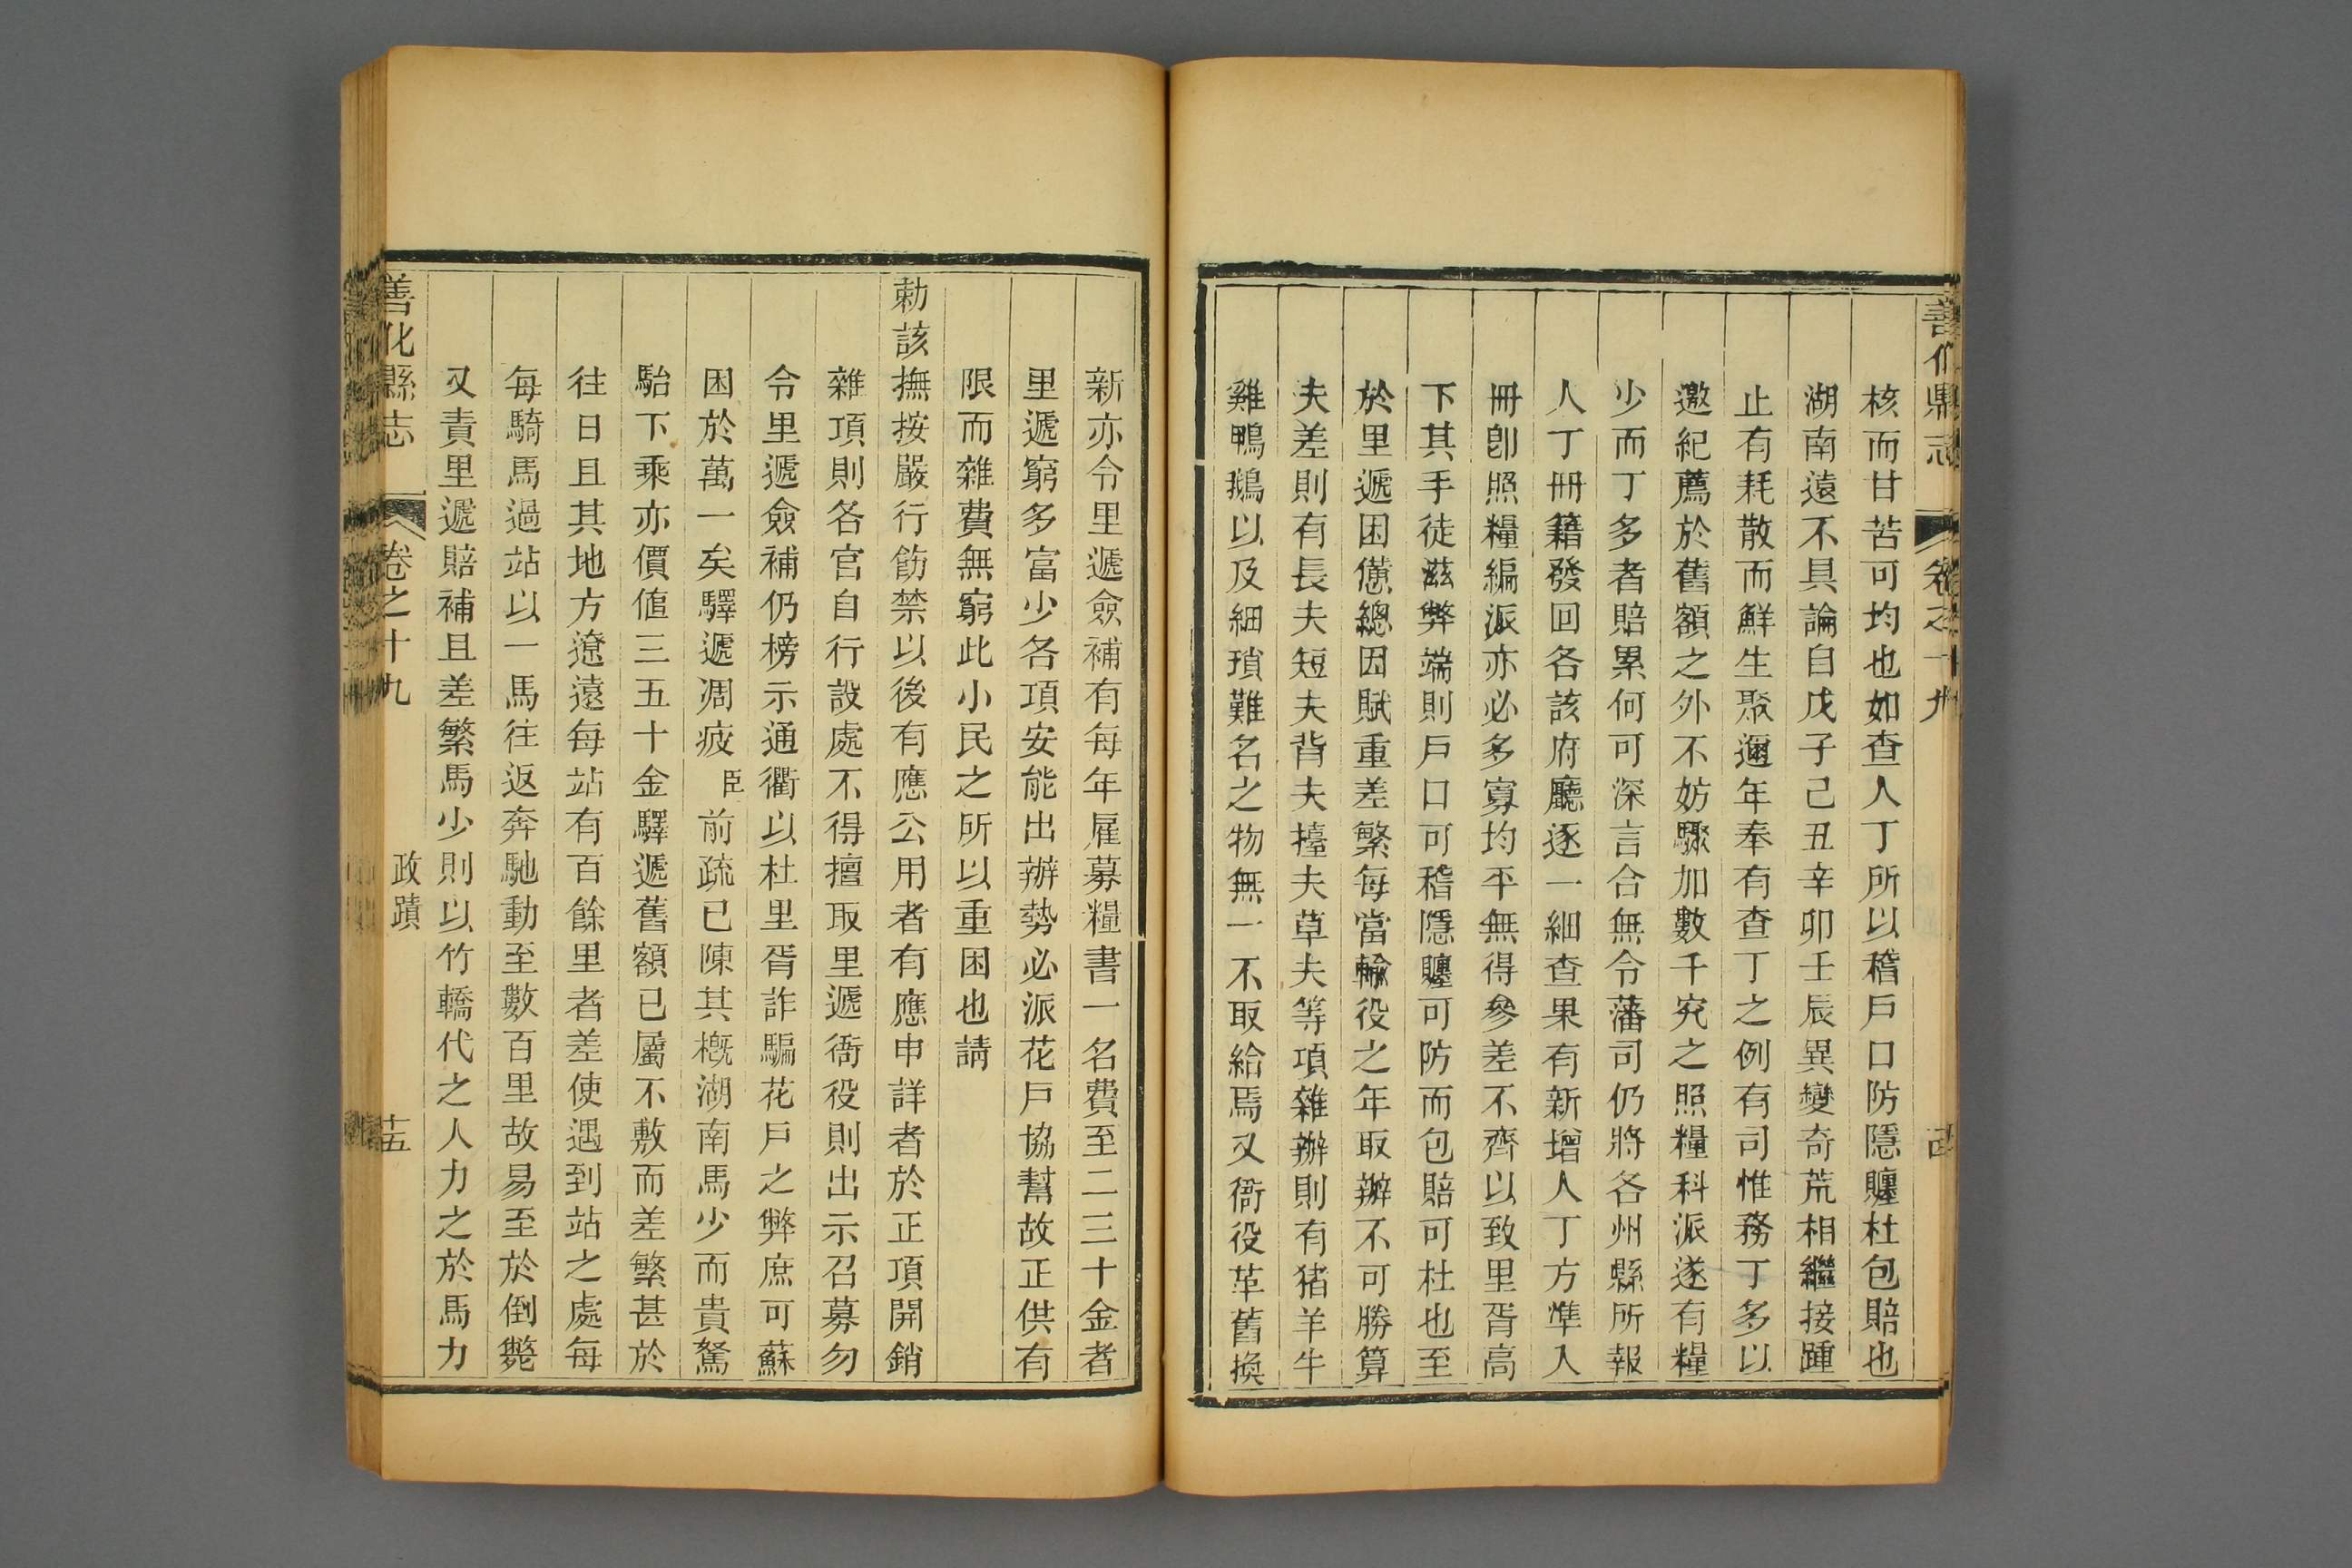 善化縣志 卷之十九
核而甘苦可均也如查人丁所以稽戶口防隱朦杜包賠也
湖南遠不具論自戊子己丑辛卯壬辰異變奇荒相繼接踵
止有耗散而鮮生聚邇年奉有查丁之例有司惟務丁多以
邀紀薦於舊額之外不妨驟加數千究之照糧科派遂有糧
少而丁多者賠累何可深言合無令藩司仍將各州縣所報
人丁冊籍發回各該府廳逐一細查果有新增人丁方準入
冊卽照糧編派亦必多寡均平無得參差不齊以致里胥高
下其手徒滋弊端則戶口可稽隱朦可防而包賠可杜也至
於里遞困憊總因賦重差繁每當輸役之年取辦不可勝算
夫差則有長夫短夫背夫擡夫草夫等項雜辦則有猪羊牛
雞鴨鵝以及細瑣難名之物無一不取給焉又衙役革舊換
新亦令里遞僉補有每年雇募糧書一名費至二三十金者
里遞窮多富少各項安能出辦勢必派花戶協幫故正供有
限而雜費無窮此小民之所以重困也請
勅該撫按嚴行飭禁以後有應公用者有應申詳者於正項開銷
雜項則各官自行設處不得擅取里遞衙役則出示召募勿
令里遞僉補仍榜示通衢以杜里胥詐騙花戶之弊庶可蘇
困於萬一矣驛遞凋疲臣前疏已陳其概湖南馬少而貴駑
駘下乘亦價値三五十金驛遞舊額已屬不敷而差繁甚於
往日且其地方遼遠每站有百餘里者差使遇到站之處每
每騎馬過站以一馬往返奔馳動至數百里故易至於倒斃
又責里遞賠補且差繁馬少則以竹轎代之人力之於馬力
善化縣志 卷之十九 政蹟 十五